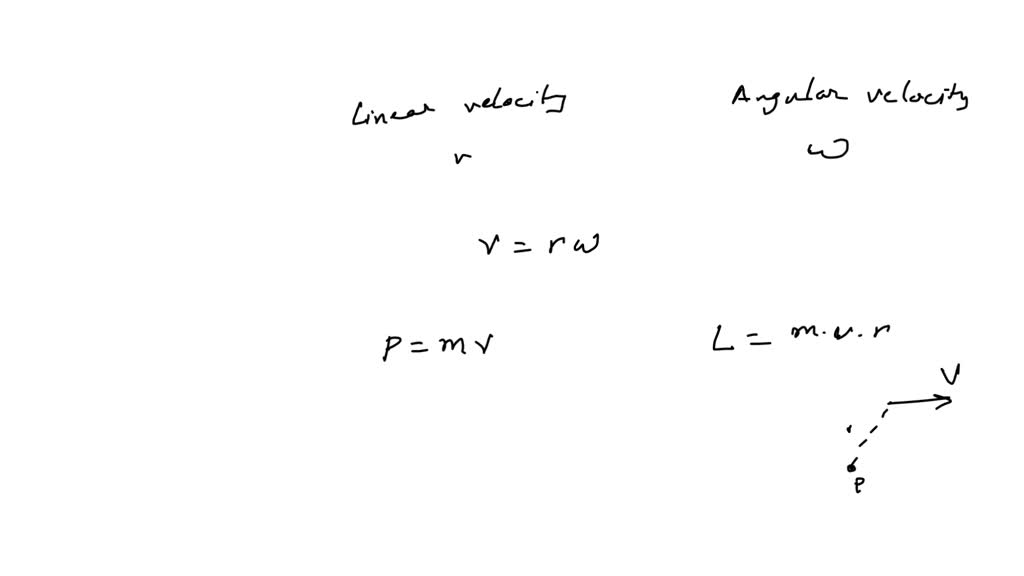 Linear velocity Angular velocity
v ω
v = r ω
P = m v L = m . v . r
V
P